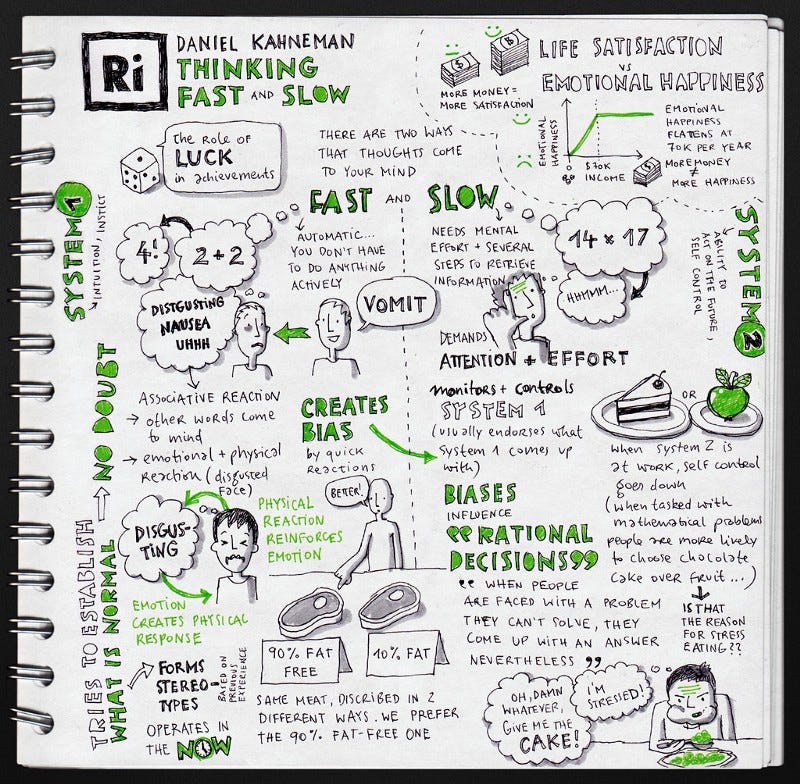 Ri
DANIEL KAHNEMAN
THINKING
FAST AND SLOW
LIFE SATISFACTION
VS
EMOTIONAL HAPPINESS
MORE MONEY =
MORE SATISFACTION
EMOTIONAL
HAPPINESS
$70K
INCOME
EMOTIONAL
HAPPINESS
FLATENS AT
70K PER YEAR
MORE MONEY
≠
MORE HAPPINESS
The role of
LUCK
in achievements
THERE ARE TWO WAYS
THAT THOUGHTS COME
TO YOUR MIND
FAST AND SLOW
SYSTEM 1
→ INTUITION, INSTICT
4!
2+2
AUTOMATIC...
YOU DON'T HAVE
TO DO ANYTHING
ACTIVELY
DISTGUSTING
NAUSEA
UHHH
VOMIT
ASSOCIATIVE REACTION
→ other words come
to mind
→ emotional + physical
Reaction (disgusted
face)
CREATES
BIAS
by quick
Reactions
TRIES TO ESTABLISH
WHAT IS NORMAL → NO DOUBT
DISGUS-
TING
PHYSICAL
REACTION
REINFORCES
EMOTION
EMOTION
CREATES PHYSICAL
RESPONSE
BETTER!
90% FAT
FREE
10% FAT
SAME MEAT, DISCRIBED IN 2
DIFFERENT WAYS. WE PREFER
THE 90% FAT-FREE ONE
FORMS
STEREO-
TYPES
BASED ON
PREVIOUS
EXPERIENCE
OPERATES IN
THE NOW
SYSTEM 2
ABILITY TO
ACT ON THE FUTURE,
SELF CONTROL
NEEDS MENTAL
EFFORT + SEVERAL
STEPS TO RETRIEVE
INFORMATION
14 x 17
HHMMM...
DEMANDS
ATTENTION + EFFORT
monitors + controls
SYSTEM 1
(usually endorses what
System 1 comes up
with)
BIASES
INFLUENCE
"RATIONAL
DECISIONS"
" WHEN PEOPLE
ARE FACED WITH A PROBLEM
THEY CAN'T SOLVE, THEY
COME UP WITH AN ANSWER
NEVERTHELESS "
OR
When System 2 is
at work, self control
goes down
(when tasked with
mathematical problems
people are more likely
to choose chocolate
cake over fruit...)
IS THAT
THE REASON
FOR STRESS
EATING??
OH, DAMN
WHATEVER,
GIVE ME THE
CAKE!
I'M
STRESSED!